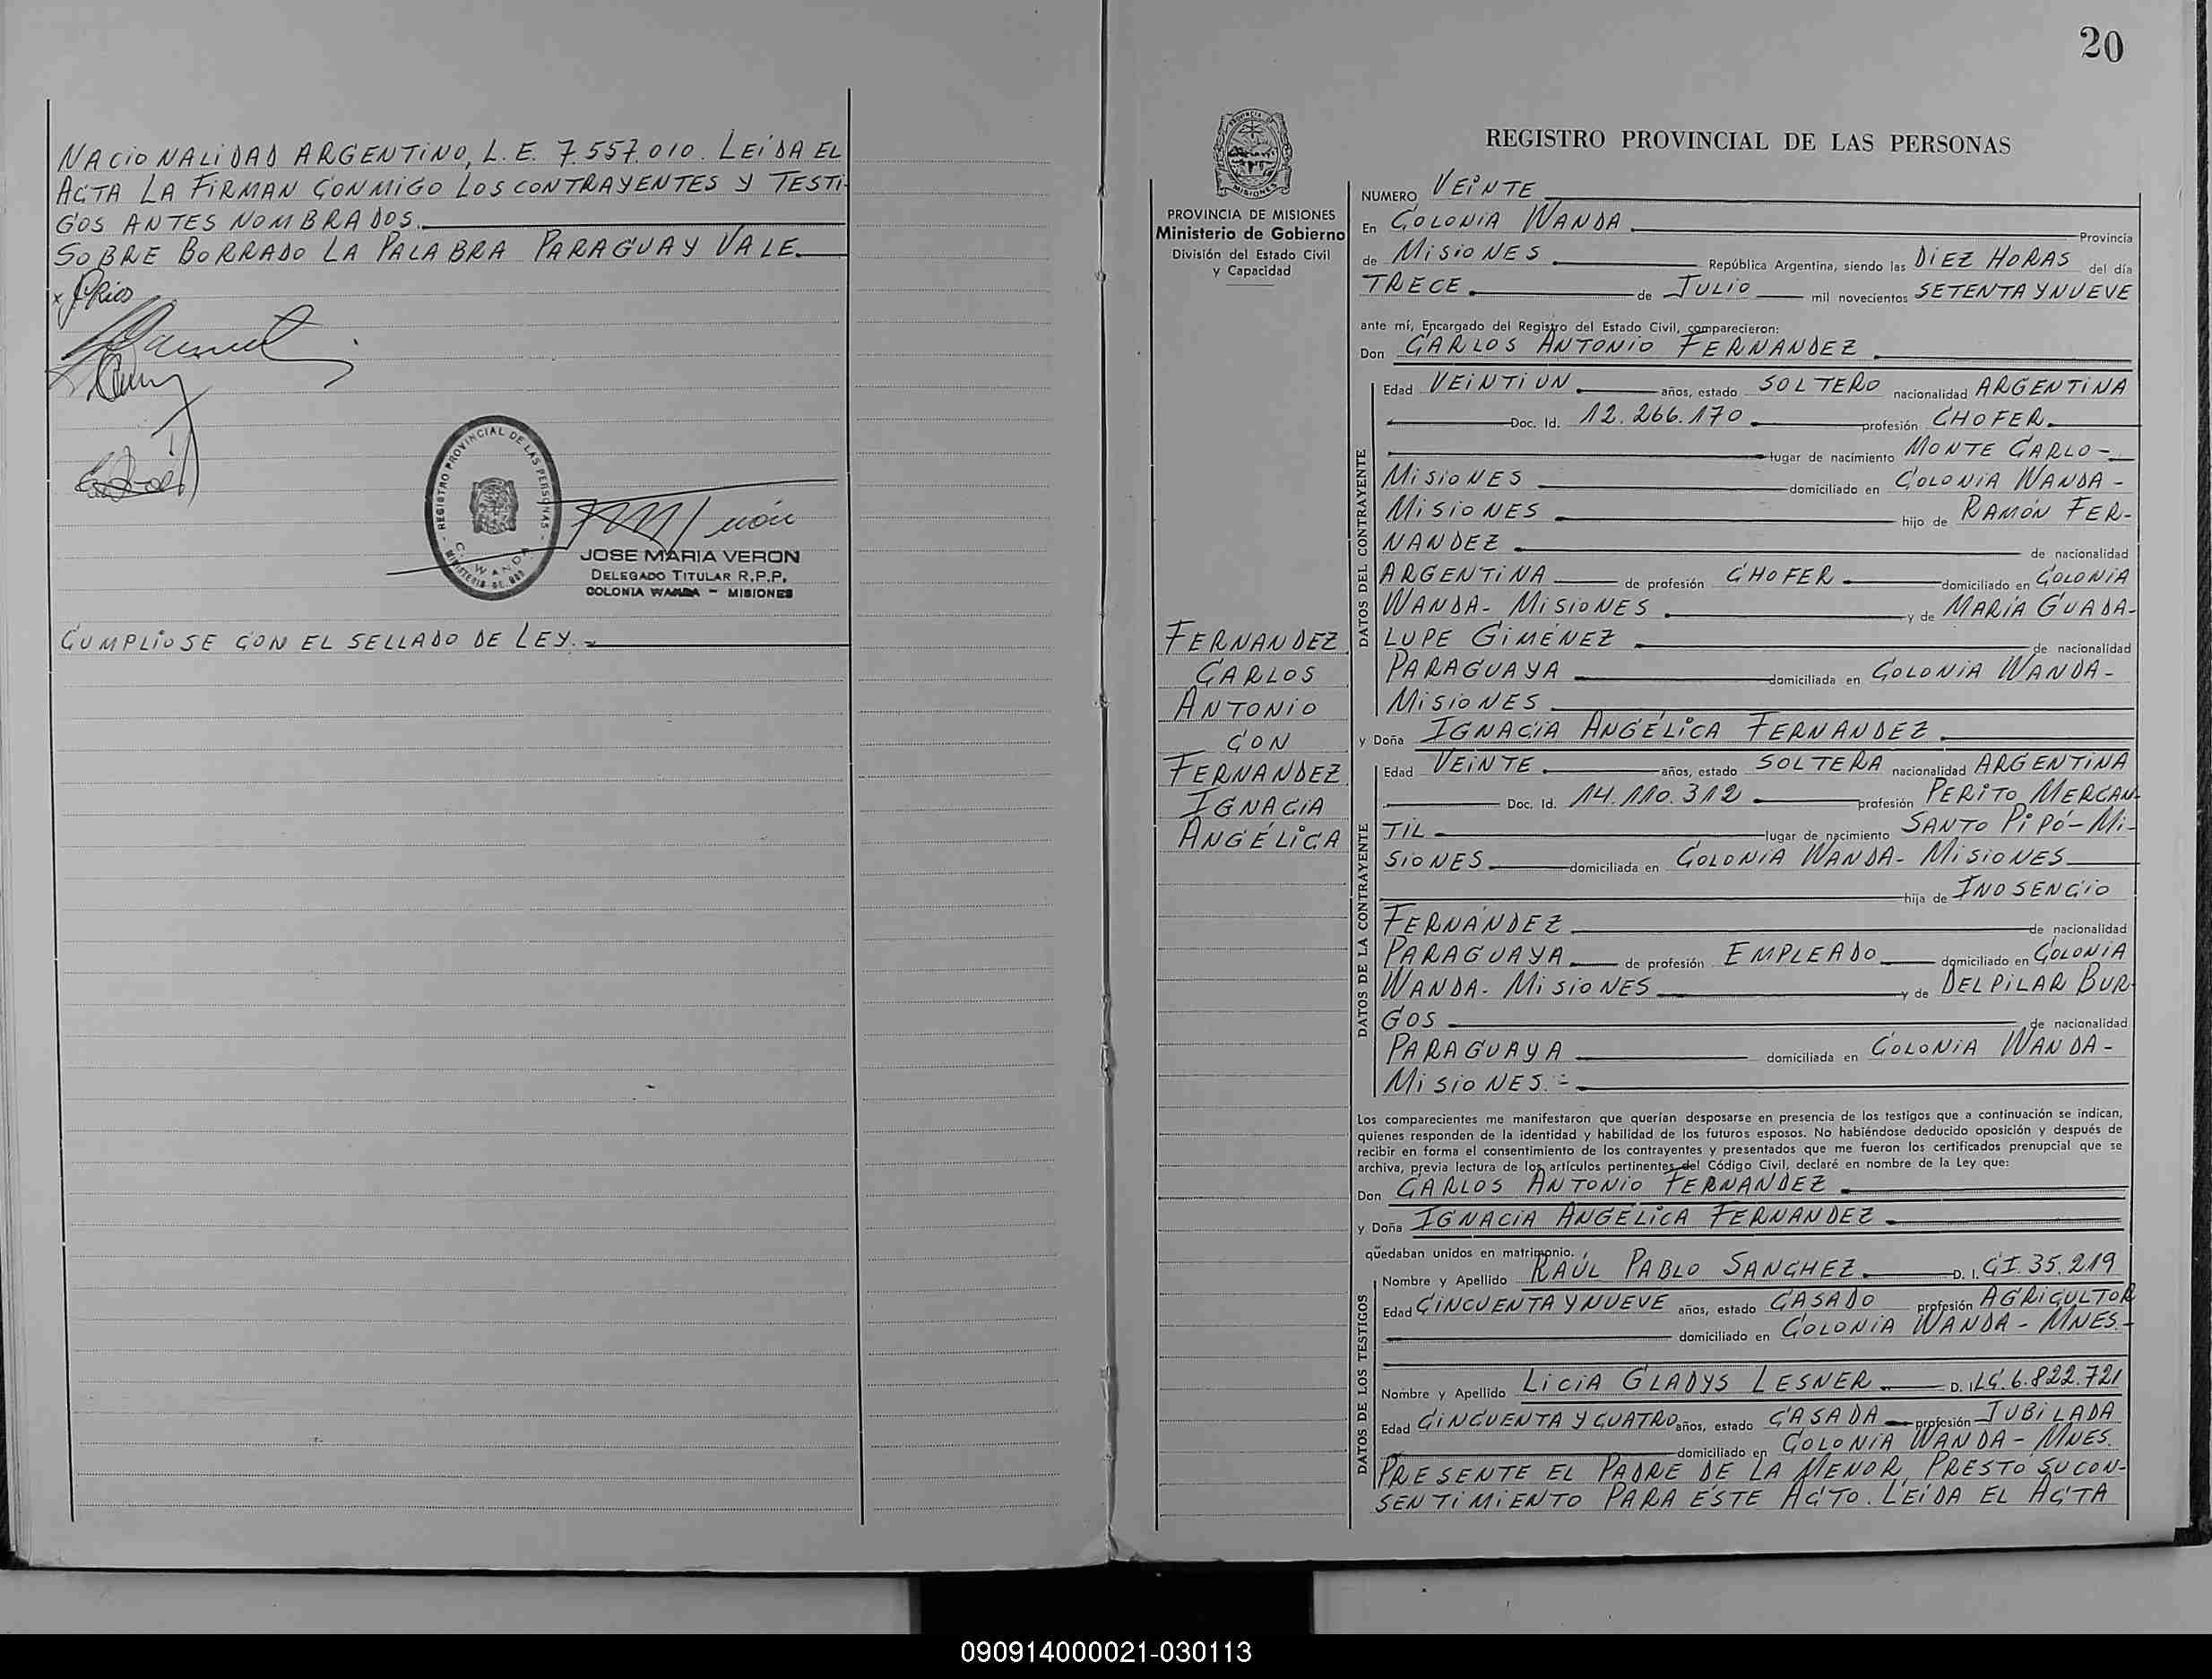 NACIONALIDAD ARGENTINO, L.E. 7.557.010. LEÍDA EL
ACTA LA FIRMAN CONMIGO LOS CONTRAYENTES Y TESTI-
GOS ANTES NOMBRADOS.
SOBRE BORRADO LA PALABRA PARAGUAY VALE.
REGISTRO PROVINCIAL DE LAS PERSONAS
C. WANDA
JOSE MARIA VERON
DELEGADO TITULAR R.P.P.
COLONIA WANDA - MISIONES
CUMPLIOSE CON EL SELLADO DE LEY.-
20
PROVINCIA DE MISIONES
Ministerio de Gobierno
División del Estado Civil
y Capacidad
FERNANDEZ
CARLOS
ANTONIO
CON
FERNANDEZ
IGNACIA
ANGÉLICA
REGISTRO PROVINCIAL DE LAS PERSONAS
NUMERO VEINTE
En COLONIA WANDA Provincia
de MISIONES República Argentina, siendo las DIEZ HORAS del día
TRECE de JULIO mil novecientos SETENTA Y NUEVE
ante mí, Encargado del Registro del Estado Civil, comparecieron:
Don CARLOS ANTONIO FERNANDEZ
DATOS DEL CONTRAYENTE
Edad VEINTIUN años, estado SOLTERO nacionalidad ARGENTINA
Doc. Id. 12.266.170 profesión CHOFER
lugar de nacimiento MONTE CARLO-
MISIONES domiciliado en COLONIA WANDA-
MISIONES hijo de RAMÓN FER-
NANDEZ de nacionalidad
ARGENTINA de profesión CHOFER domiciliado en COLONIA
WANDA- MISIONES y de MARÍA GUADA-
LUPE GIMÉNEZ de nacionalidad
PARAGUAYA domiciliada en COLONIA WANDA-
MISIONES
y Doña IGNACIA ANGÉLICA FERNANDEZ
DATOS DE LA CONTRAYENTE
Edad VEINTE años, estado SOLTERA nacionalidad ARGENTINA
Doc. Id. 14.110.312 profesión PERITO MERCAN-
TIL lugar de nacimiento SANTO PIPÓ-MI-
SIONES domiciliada en COLONIA WANDA- MISIONES
hija de INOSENCIO
FERNÁNDEZ de nacionalidad
PARAGUAYA de profesión EMPLEADO domiciliado en COLONIA
WANDA- MISIONES y de DELPILAR BUR-
GOS de nacionalidad
PARAGUAYA domiciliada en COLONIA WANDA-
MISIONES.-
Los comparecientes me manifestaron que querían desposarse en presencia de los testigos que a continuación se indican,
quienes responden de la identidad y habilidad de los futuros esposos. No habiéndose deducido oposición y después de
recibir en forma el consentimiento de los contrayentes y presentados que me fueron los certificados prenupcial que se
archiva, previa lectura de los artículos pertinentes del Código Civil, declaré en nombre de la Ley que:
Don CARLOS ANTONIO FERNANDEZ
y Doña IGNACIA ANGÉLICA FERNANDEZ
quedaban unidos en matrimonio.
DATOS DE LOS TESTIGOS
Nombre y Apellido RAÚL PABLO SANCHEZ D. I. CI. 35.219
Edad CINCUENTA Y NUEVE años, estado CASADO profesión AGRICULTOR
domiciliado en COLONIA WANDA-MNES.-
Nombre y Apellido LICIA GLADYS LESNER D. I. LC. 6.822.721
Edad CINCUENTA Y CUATRO años, estado CASADA profesión JUBILADA
domiciliado en COLONIA WANDA-MNES.
PRESENTE EL PADRE DE LA MENOR, PRESTÓ SU CON-
SENTIMIENTO PARA ESTE ACTO. LEÍDA EL ACTA
090914000021-030113